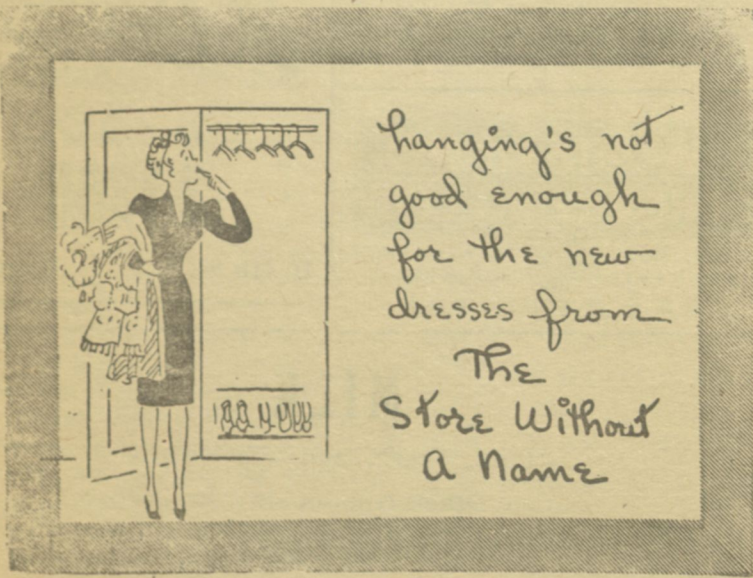 hanging's not
good enough
for the new
dresses from
The
Store Without
A Name